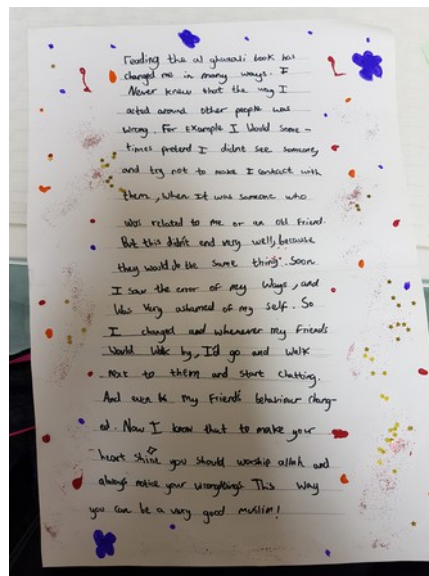 reading the al ghazali book has
changed me in many ways. I
Never knew that the way I
acted around other people was
wrong. For Example I Would Some-
times pretend I didnt see someone,
and try not to make I contact with
them, when It was someone who
was related to me or an old friend.
But this didn't end very well, because
they would do the same thing. Soon
I saw the error of my ways, and
Was Very ashamed of my self. So
I changed and whenever my friends
would walk by, I'd go and walk
next to them and start chatting.
And even my Friend's behaviour chang-
ed. Now I know that to make your
heart shine you should worship allah and
always notice your wrongthings This way
you can be a very good muslim!